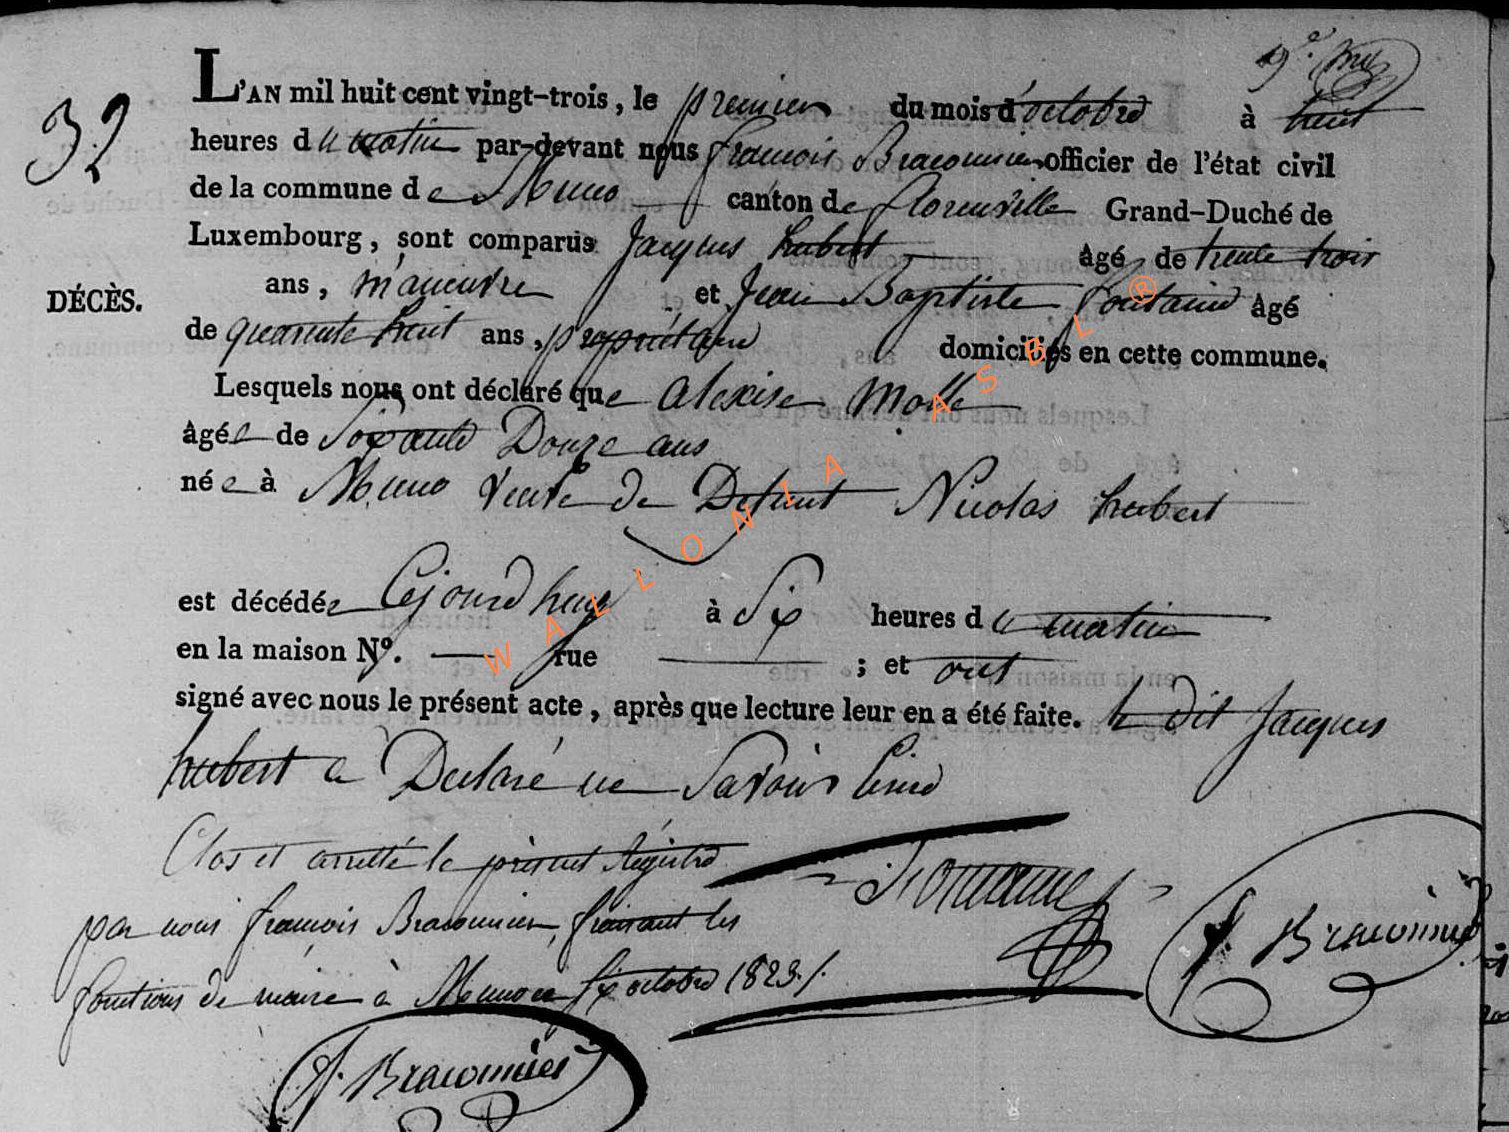 19e.
32
L'AN mil huit cent vingt-trois, le premier du mois d'octobre à huit
heures du matin par-devant nous françois Braconnier officier de l'état civil
de la commune de Muno canton de florenville Grand-Duché de
Luxembourg, sont comparus Jacques hubert âgé de trente trois
DÉCÈS.
ans, manœuvre et Jean Baptiste fontaine âgé
de quarante huit ans, propriétaire domiciliés en cette commune.
Lesquels nous ont déclaré que alexise Molle
âgée de Soixante Douze ans
née à Muno veuve de Defunt Nicolas hubert
est décédée Cejourd'huy à Six heures du matin
en la maison N°. — rue — ; et ont
signé avec nous le présent acte, après que lecture leur en a été faite. le dit Jacques
hubert a Declaré ne Savoir Signé
Clos et arretté le présent Régistre
par nous françois Braconnier, faisant les
fonctions de maire à Muno ce six octobre 1823./.
F. Braconnier
F. Braconnier
WALLONIA ASBL ®